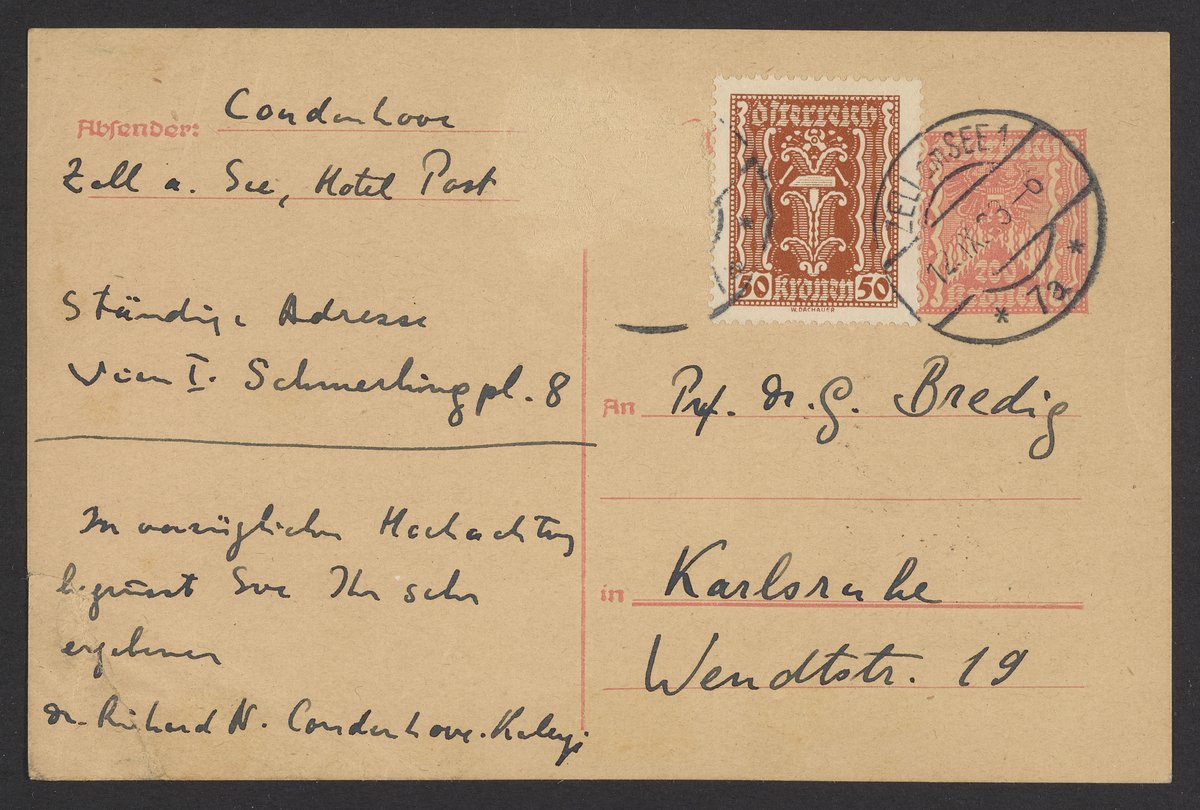 Absender: Coudenhove
Zell a. See, Hotel Post
Ständige Adresse
Wien I. Schmerlingpl. 8
In vorzüglicher Hochachtung
begrüsst Sie Ihr sehr
ergebener
Dr. Richard N. Coudenhove-Kalergi
Österreich
50 Kronen 50
W. DACHAUER
ZELL AM SEE 1
* 1a *
200
Kronen
An Prf. Dr. G. Bredig
in Karlsruhe
Wendtstr. 19